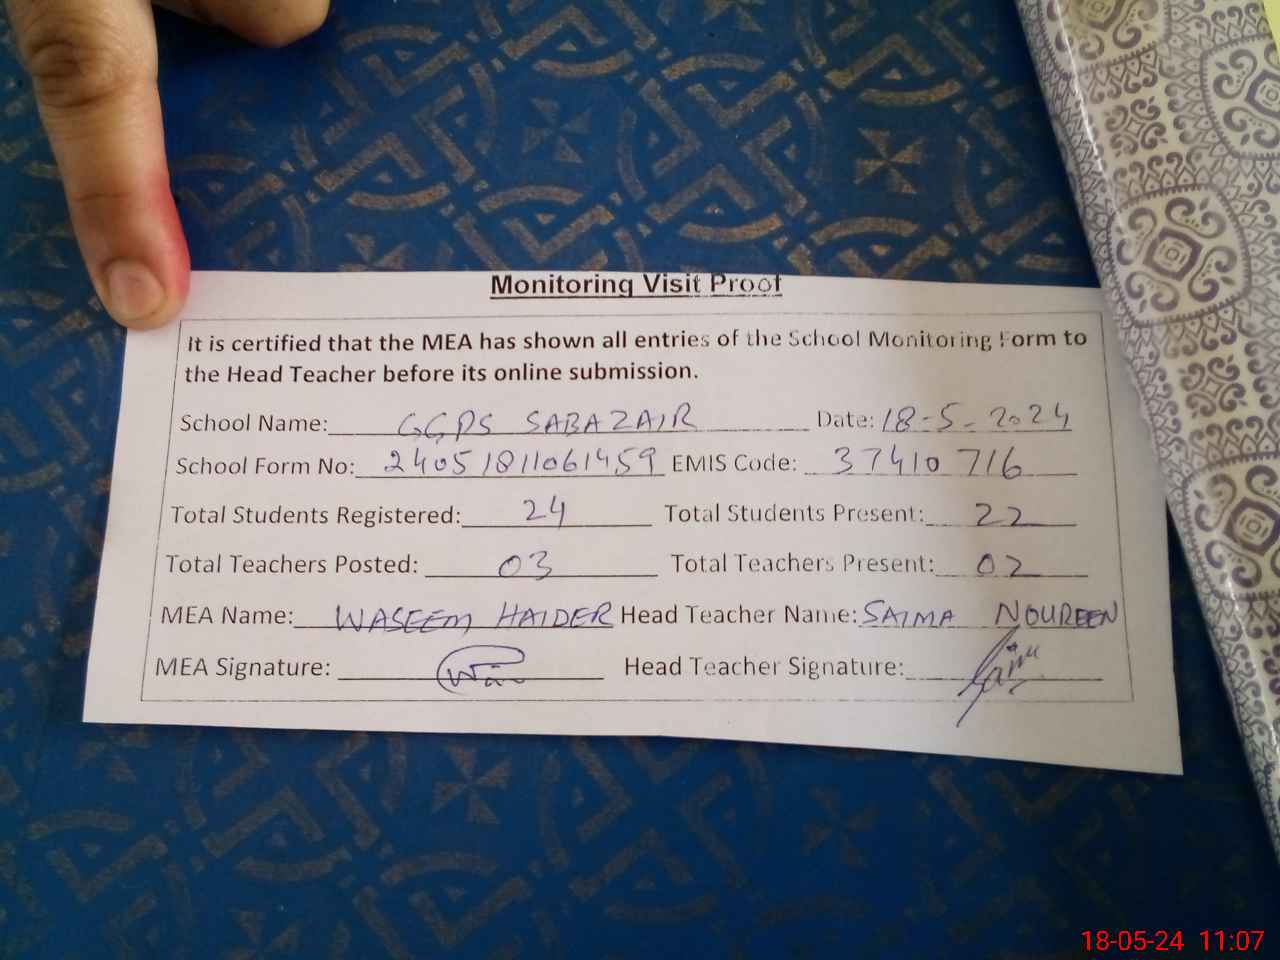 Monitoring Visit Proof
It is certified that the MEA has shown all entries of the School Monitoring Form to
the Head Teacher before its online submission.
School Name: GGPS SABAZAIR Date: 18-5-2024
School Form No: 24051811061459 EMIS Code: 37410716
Total Students Registered: 24 Total Students Present: 22
Total Teachers Posted: 03 Total Teachers Present: 02
MEA Name: WASEEM HAIDER Head Teacher Name: SAIMA NOUREEN
MEA Signature: Head Teacher Signature:
18-05-24 11:07